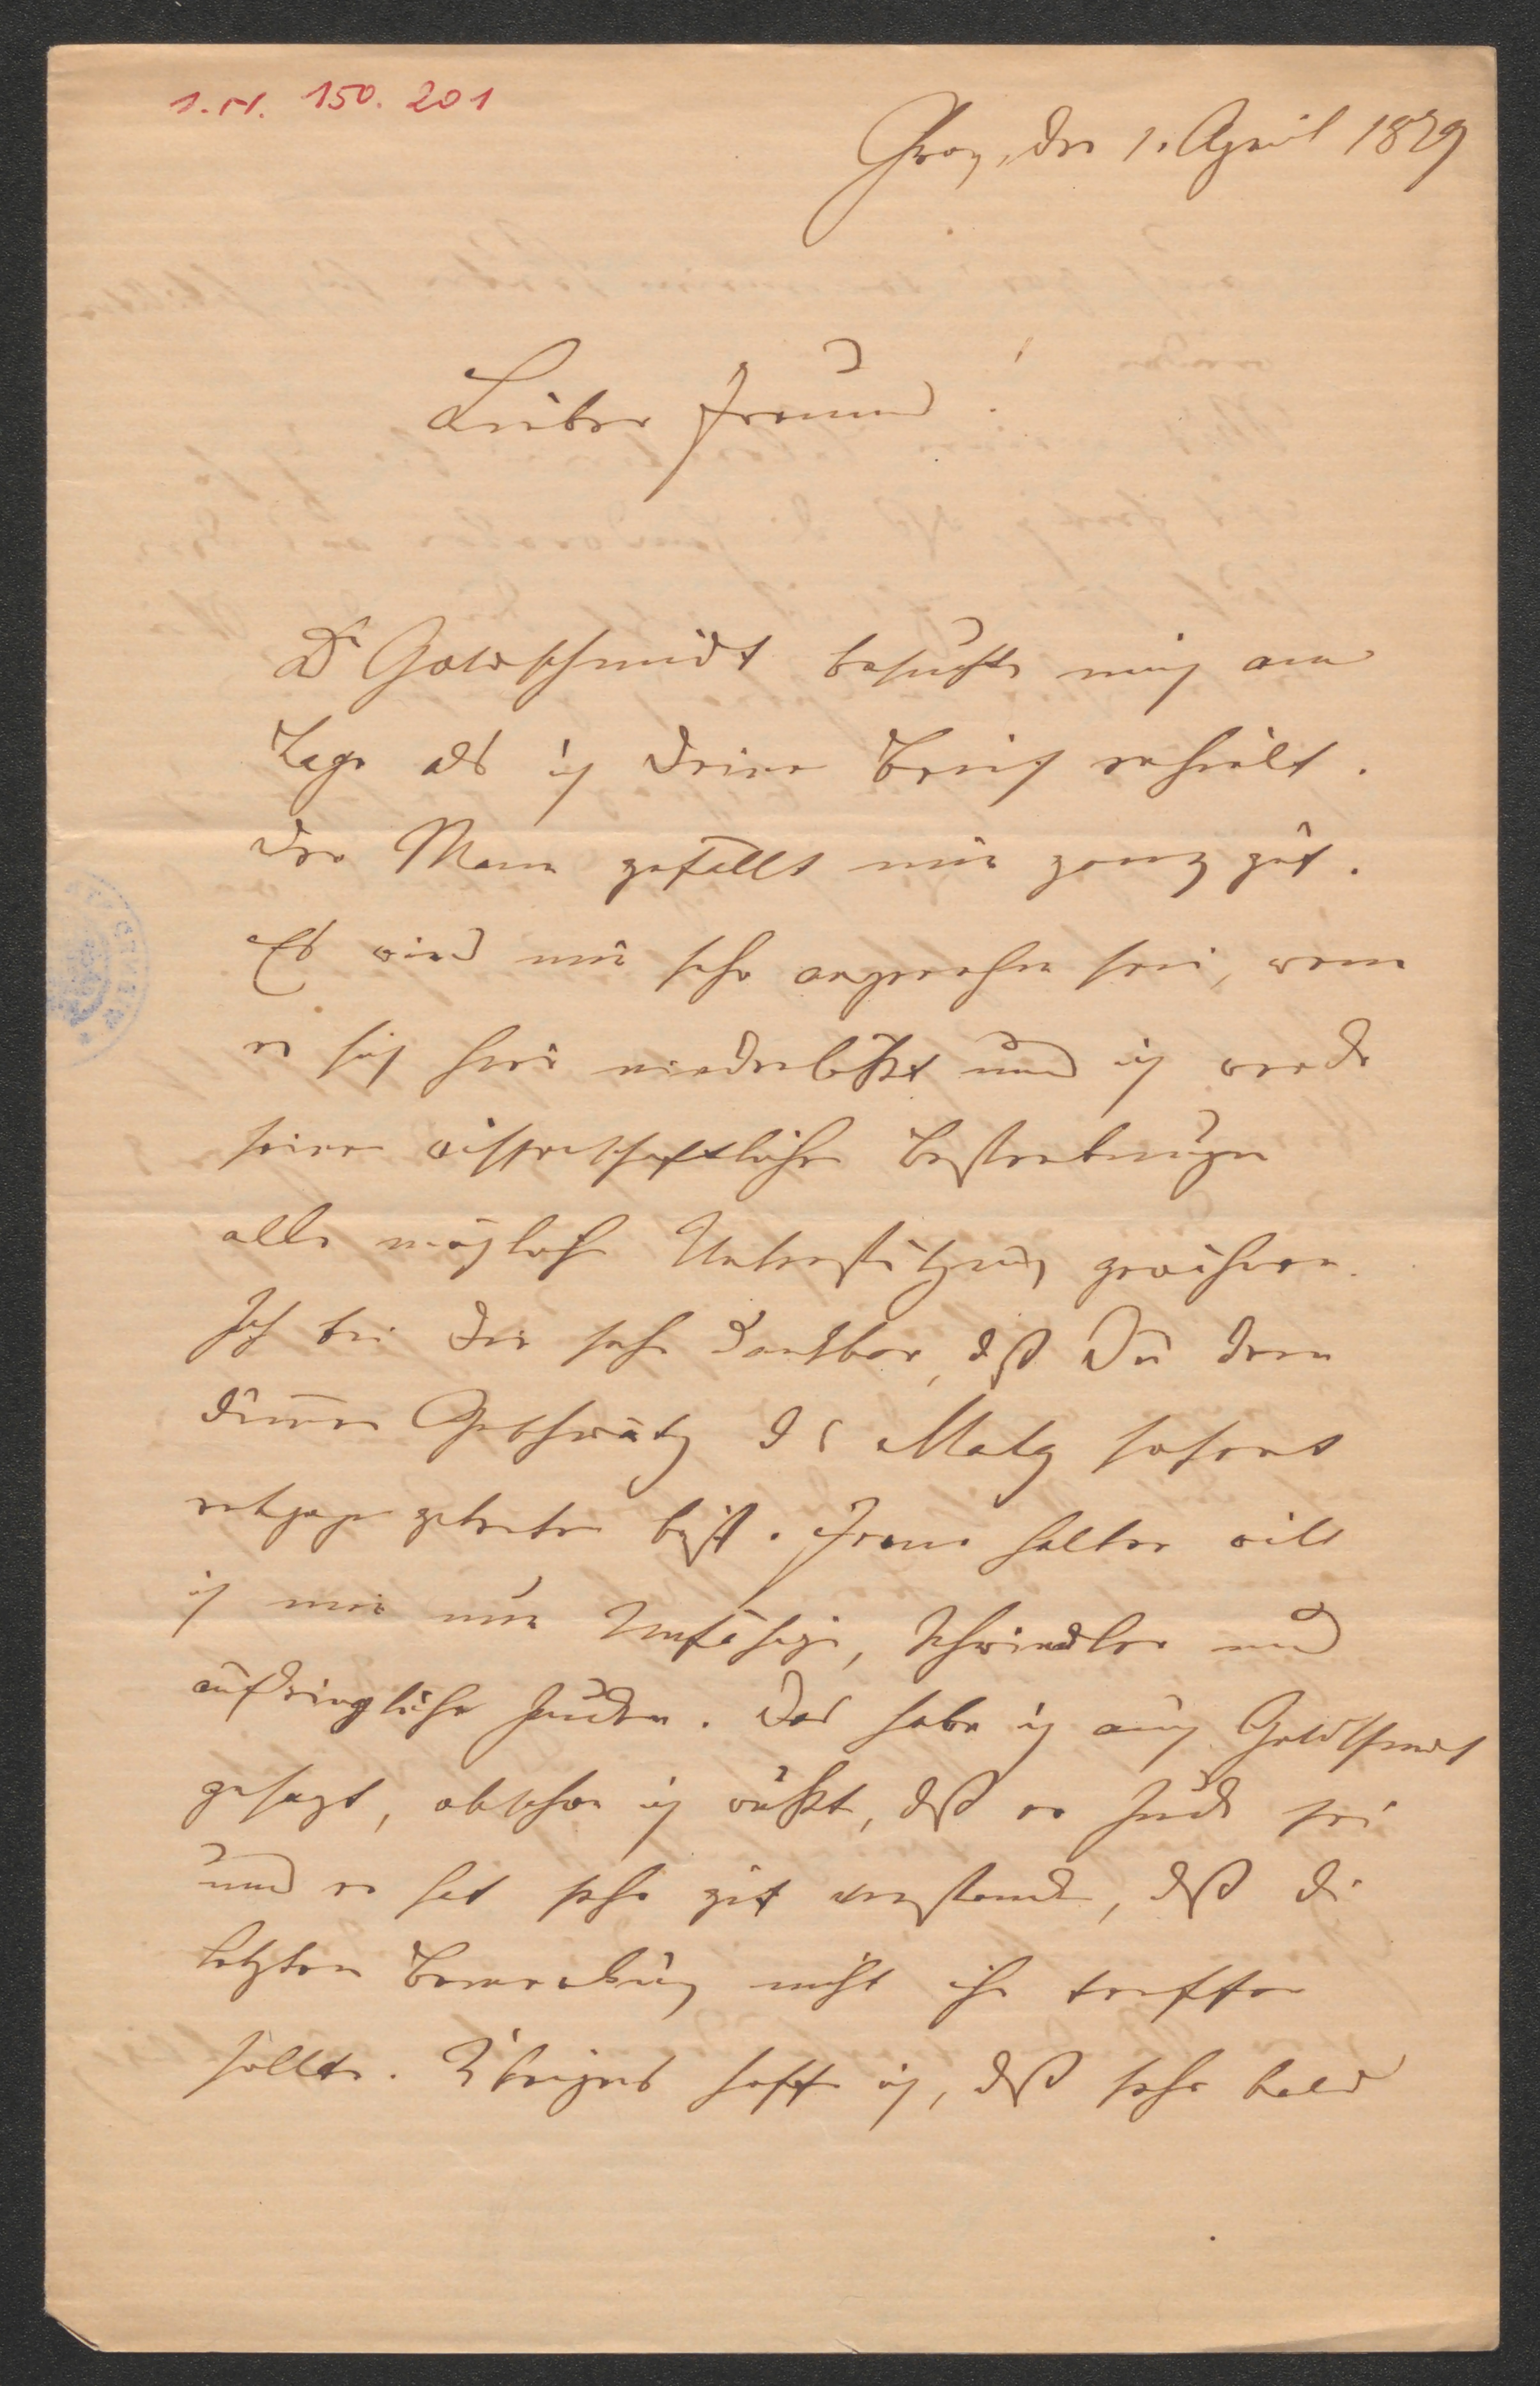 I.N. 150.201
Graz, den 1. April 1879
Lieber Freund!
Dr Goldschmidt besuchte mich am
Tage als ich Deinen Brief erhielt.
Der Mann gefällt mir ganz gut.
Es wird mir sehr angenehm sein, wenn
er sich hier niederläßt und ich werde
seinen wissenschaftlichen Bestrebungen
alle mögliche Unterstützung gewähren.
Ich bin Dir sehr dankbar, daß Du dem
dummen Geschwätz des Maly sofort
entgegen getreten bist. Ferne halten will
ich mir nur Unfähige, Schwindler und
aufdringliche Juden. Das habe ich auch Goldschmidt
gesagt, obschon ich wußte, daß er Jude sei
und er hat sehr gut verstanden, daß die
letztere Bemerkung nicht ihn treffen
sollte. Übrigens hoffe ich, daß sehr bald